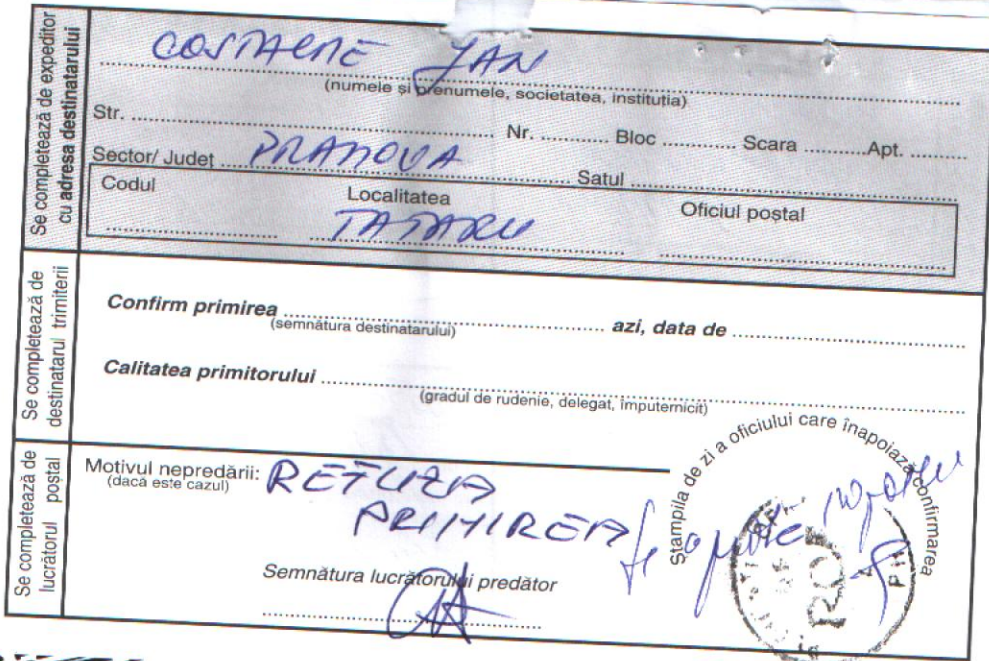 Se completează de expeditor
cu adresa destinatarului
COSTACHE JAN
(numele și prenumele, societatea, instituția)
Str. .......... Nr. .......... Bloc .......... Scara .......... Apt. ..........
Sector/ Județ PRAHOVA Satul ..........
Codul Localitatea Oficiul poștal
TATARU
Se completează de
destinatarul trimiterii
Confirm primirea .......... azi, data de ..........
(semnătura destinatarului)
Calitatea primitorului ..........
(gradul de rudenie, delegat, împuternicit)
Se completează de
lucrătorul poștal
Motivul nepredării: REFUZA
(dacă este cazul)
PRIMIREA
Semnătura lucrătorului predător
Ștampila de zi a oficiului care înapoiază confirmarea
RO